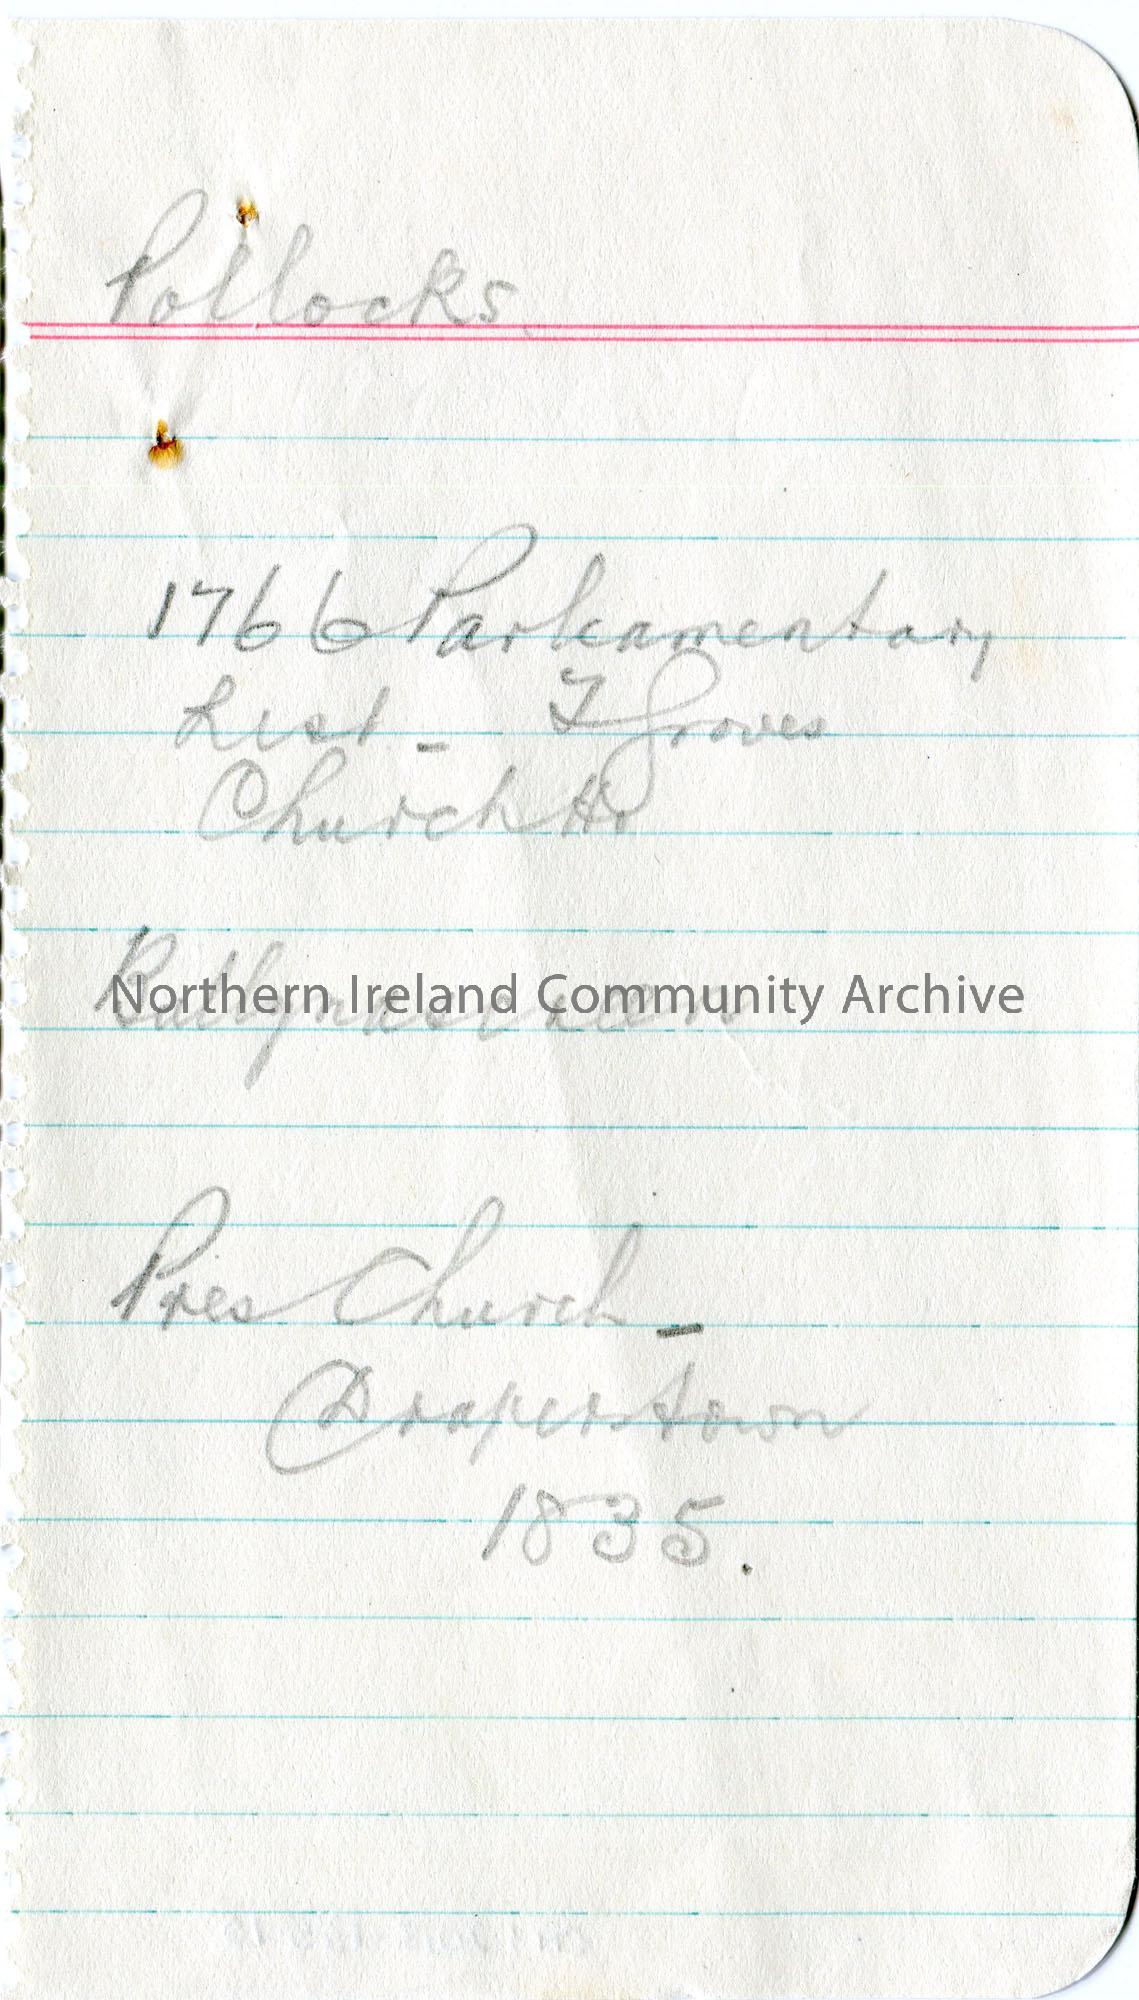 Pollocks
1766 Parliamentary
List - T Groves
Church Ho
Northern Ireland Community Archive
Pres Church -
Draperstown
1835.